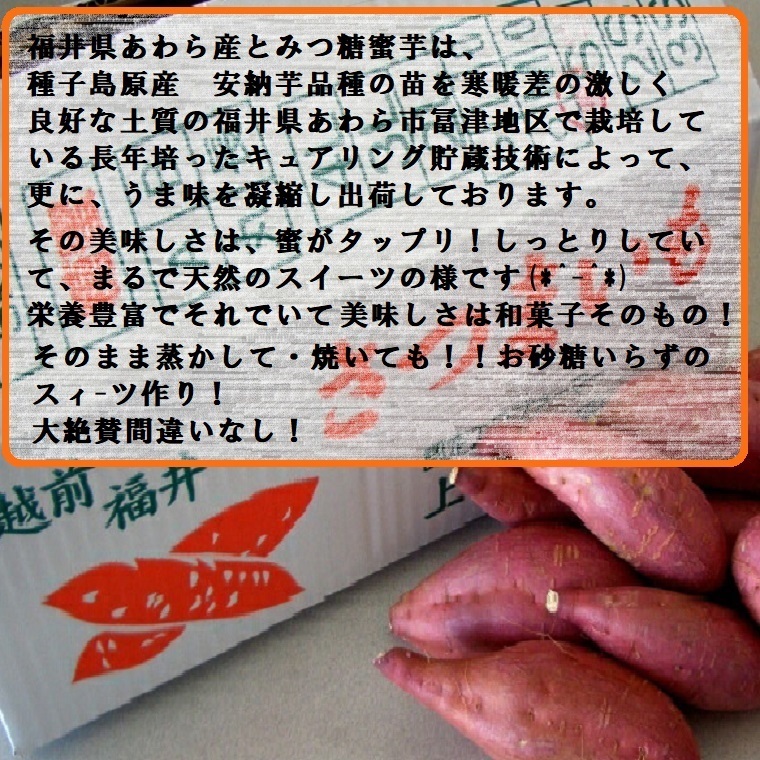 福井県あわら産とみつ糖蜜芋は、
種子島原産　安納芋品種の苗を寒暖差の激しく
良好な土質の福井県あわら市冨津地区で栽培して
いる長年培ったキュアリング貯蔵技術によって、
更に、うま味を凝縮し出荷しております。
その美味しさは、蜜がタップリ！しっとりしてい
て、まるで天然のスイーツの様です(*^-^*)
栄養豊富でそれでいて美味しさは和菓子そのもの！
そのまま蒸かして・焼いても！！お砂糖いらずの
スィ-ツ作り！
大絶賛間違いなし！
越前 福井